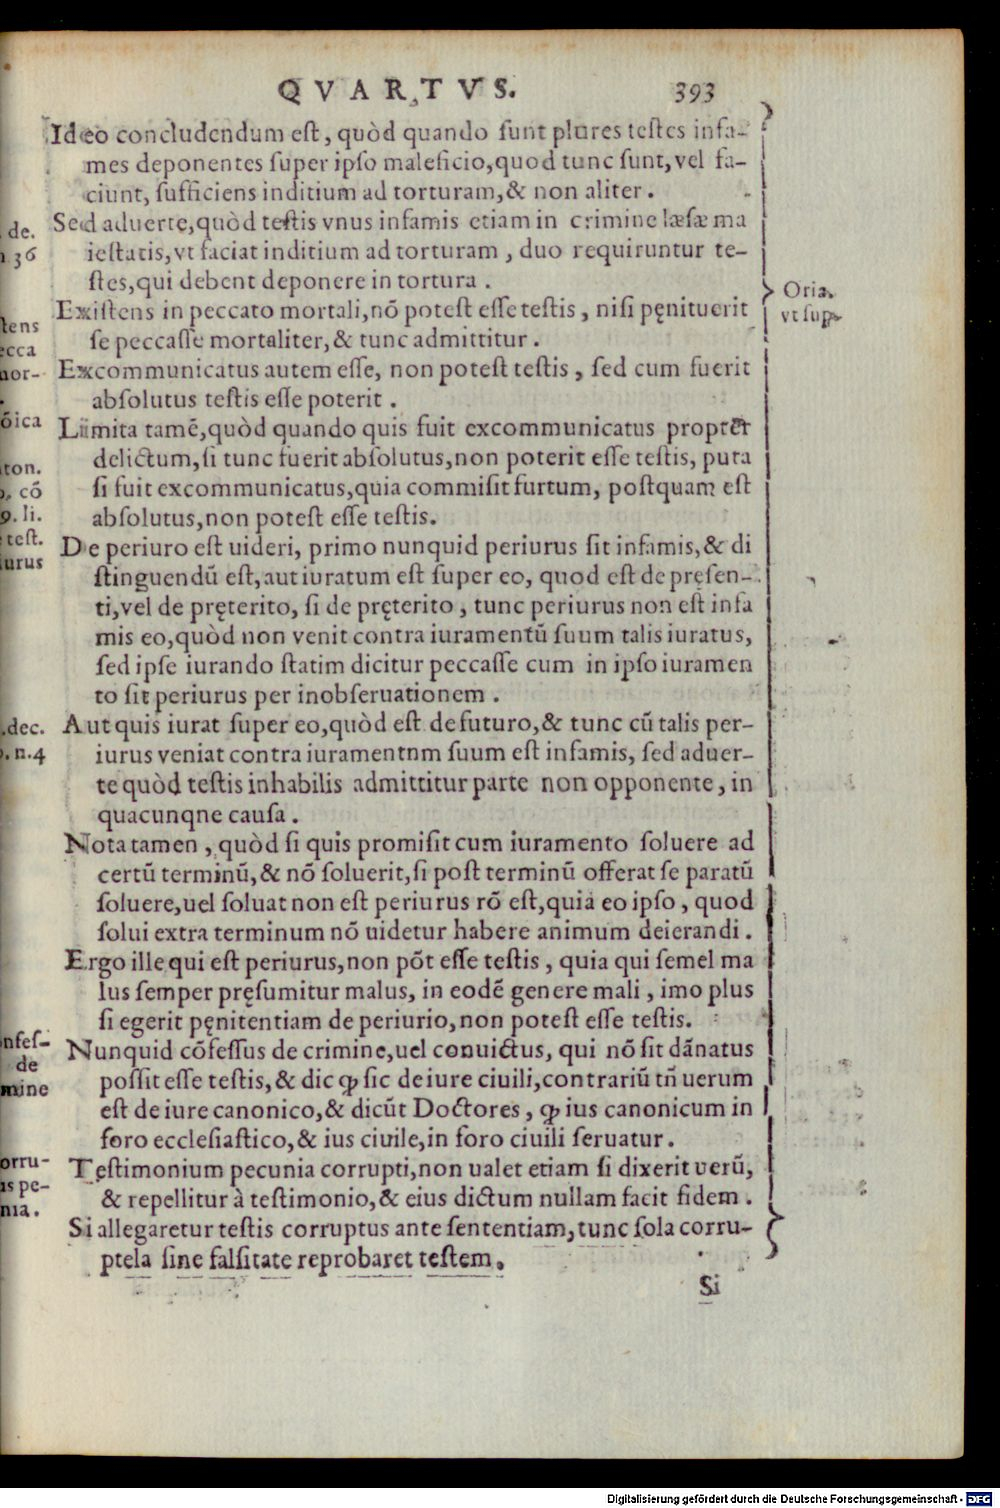 QVARTVS. 393
Ideo concludendum est, quòd quando sunt plures testes infa-
mes deponentes super ipso maleficio,quod tunc sunt,vel fa-
ciunt, sufficiens inditium ad torturam,& non aliter.
Sed aduerte,quòd testis vnus infamis etiam in crimine læsæ ma
iestatis,vt faciat inditium ad torturam, duo requiruntur te-
stes,qui debent deponere in tortura.
Existens in peccato mortali,nõ potest esse testis, nisi pęnituerit
se peccasse mortaliter,& tunc admittitur.
Excommunicatus autem esse, non potest testis, sed cum fuerit
absolutus testis esse poterit.
Limita tamẽ,quòd quando quis fuit excommunicatus propter
delictum,si tunc fuerit absolutus,non poterit esse testis, puta
si fuit excommunicatus,quia commisit furtum, postquam est
absolutus,non potest esse testis.
De periuro est uideri, primo nunquid periurus sit infamis,& di
stinguendũ est,aut iuratum est super eo, quod est de pręsen-
ti,vel de pręterito, si de pręterito, tunc periurus non est infa
mis eo,quòd non venit contra iuramentũ suum talis iuratus,
sed ipse iurando statim dicitur peccasse cum in ipso iuramen
to sit periurus per inobseruationem.
Aut quis iurat super eo,quòd est de futuro,& tunc cũ talis per-
iurus veniat contra iuramentnm suum est infamis, sed aduer-
te quòd testis inhabilis admittitur parte non opponente, in
quacunqne causa.
Nota tamen, quòd si quis promisit cum iuramento soluere ad
certũ terminũ,& nõ soluerit,si post terminũ offerat se paratũ
soluere,uel soluat non est periurus rõ est,quia eo ipso, quod
solui extra terminum nõ uidetur habere animum deierandi.
Ergo ille qui est periurus,non põt esse testis, quia qui semel ma
lus semper pręsumitur malus, in eodẽ genere mali, imo plus
si egerit pęnitentiam de periurio,non potest esse testis.
Nunquid cõfessus de crimine,uel conuictus, qui nõ sit dãnatus
possit esse testis,& dic ꝙ sic de iure ciuili,contrariũ tñ uerum
est de iure canonico,& dicũt Doctores, ꝙ ius canonicum in
foro ecclesiastico,& ius ciuile,in foro ciuili seruatur.
Testimonium pecunia corrupti,non ualet etiam si dixerit uerũ,
& repellitur à testimonio,& eius dictum nullam facit fidem.
Si allegaretur testis corruptus ante sententiam,tunc sola corru-
ptela sine falsitate reprobaret testem.
Si
Oria.
vt sup.
de.
36
tens
ecca
mor-
õica
ton.
cõ
9. li.
test.
iurus
.dec.
n.4
nfes-
de
mine
orru-
is pe-
nia.
Digitalisierung gefördert durch die Deutsche Forschungsgemeinschaft - DFG